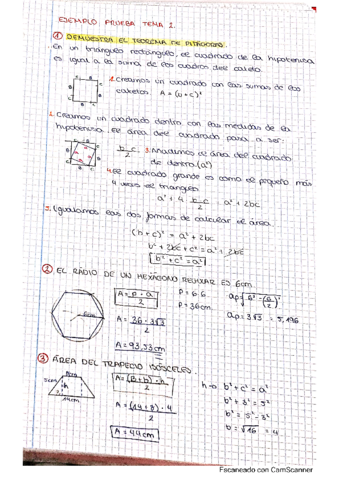 EJEMPLO PRUEBA TEMA 2.
① DEMUESTRA EL TEOREMA DE PITÁGORAS.
En un triángulo rectángulo, el cuadrado de la hipotenusa
es igual a la suma de los cuadros dele cateto.
1. Creamos un cuadrado con las sumas de los
catetos. A = (b + c)²
2. Creamos un cuadrado dentro con las medidas de la
hipotenusa. El área del cuadrado pasa a ser:
b · c / 2
3. Añadimos al área del cuadrado
de dentro (a²)
4. el cuadrado grande es como el pequeño más
4 veces el triangulo
a² + 4 b·c / 2 = a² + 2bc
5. Igualamos las dos formas de calcular el área.
(b + c)² = a² + 2bc
b² + 2bc + c² = a² + 2bc
b² + c² = a²
② EL RADIO DE UN HEXÁGONO REGULAR ES 6cm.
6cm
A = P · a / 2
P = 6 · 6
P = 36cm
A = 36 · 3√3 / 2
ap = 3√3 = 5,196
A = 93,53cm
③ ÁREA DEL TRAPECIO ISÓSCELES.
5cm
h
14cm
A = (B + b) · h / 2
A = (14 + 8) · 4 / 2
A = 44cm
b² + c² = a²
b² + 3² = 5²
b² = 5² - 3²
b = √16 = 4
Escaneado con CamScanner